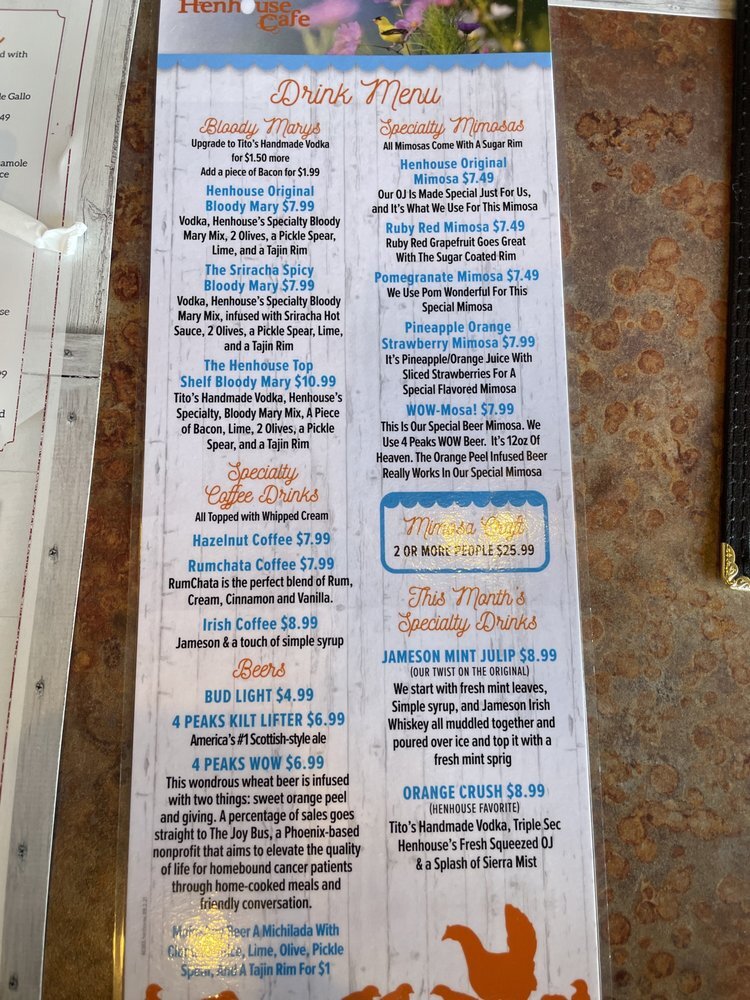 Henhouse
Cafe
Drink Menu
Bloody Marys
Upgrade to Tito's Handmade Vodka
for $1.50 more
Add a piece of Bacon for $1.99
Henhouse Original
Bloody Mary $7.99
Vodka, Henhouse's Specialty Bloody
Mary Mix, 2 Olives, a Pickle Spear,
Lime, and a Tajin Rim
The Sriracha Spicy
Bloody Mary $7.99
Vodka, Henhouse's Specialty Bloody
Mary Mix, infused with Sriracha Hot
Sauce, 2 Olives, a Pickle Spear, Lime,
and a Tajin Rim
The Henhouse Top
Shelf Bloody Mary $10.99
Tito's Handmade Vodka, Henhouse's
Specialty, Bloody Mary Mix, A Piece
of Bacon, Lime, 2 Olives, a Pickle
Spear, and a Tajin Rim
Specialty
Coffee Drinks
All Topped with Whipped Cream
Hazelnut Coffee $7.99
Rumchata Coffee $7.99
RumChata is the perfect blend of Rum,
Cream, Cinnamon and Vanilla.
Irish Coffee $8.99
Jameson & a touch of simple syrup
Beers
BUD LIGHT $4.99
4 PEAKS KILT LIFTER $6.99
America's #1 Scottish-style ale
4 PEAKS WOW $6.99
This wondrous wheat beer is infused
with two things: sweet orange peel
and giving. A percentage of sales goes
straight to The Joy Bus, a Phoenix-based
nonprofit that aims to elevate the quality
of life for homebound cancer patients
through home-cooked meals and
friendly conversation.
Beer A Michilada With
Lime, Olive, Pickle
Spear, And A Tajin Rim For $1
Specialty Mimosas
All Mimosas Come With A Sugar Rim
Henhouse Original
Mimosa $7.49
Our OJ Is Made Special Just For Us,
and It's What We Use For This Mimosa
Ruby Red Mimosa $7.49
Ruby Red Grapefruit Goes Great
With The Sugar Coated Rim
Pomegranate Mimosa $7.49
We Use Pom Wonderful For This
Special Mimosa
Pineapple Orange
Strawberry Mimosa $7.99
It's Pineapple/Orange Juice With
Sliced Strawberries For A
Special Flavored Mimosa
WOW-Mosa! $7.99
This Is Our Special Beer Mimosa. We
Use 4 Peaks WOW Beer. It's 12oz Of
Heaven. The Orange Peel Infused Beer
Really Works In Our Special Mimosa
Mimosa Craft
2 OR MORE PEOPLE $25.99
This Month's
Specialty Drinks
JAMESON MINT JULIP $8.99
(OUR TWIST ON THE ORIGINAL)
We start with fresh mint leaves,
Simple syrup, and Jameson Irish
Whiskey all muddled together and
poured over ice and top it with a
fresh mint sprig
ORANGE CRUSH $8.99
(HENHOUSE FAVORITE)
Tito's Handmade Vodka, Triple Sec
Henhouse's Fresh Squeezed OJ
& a Splash of Sierra Mist